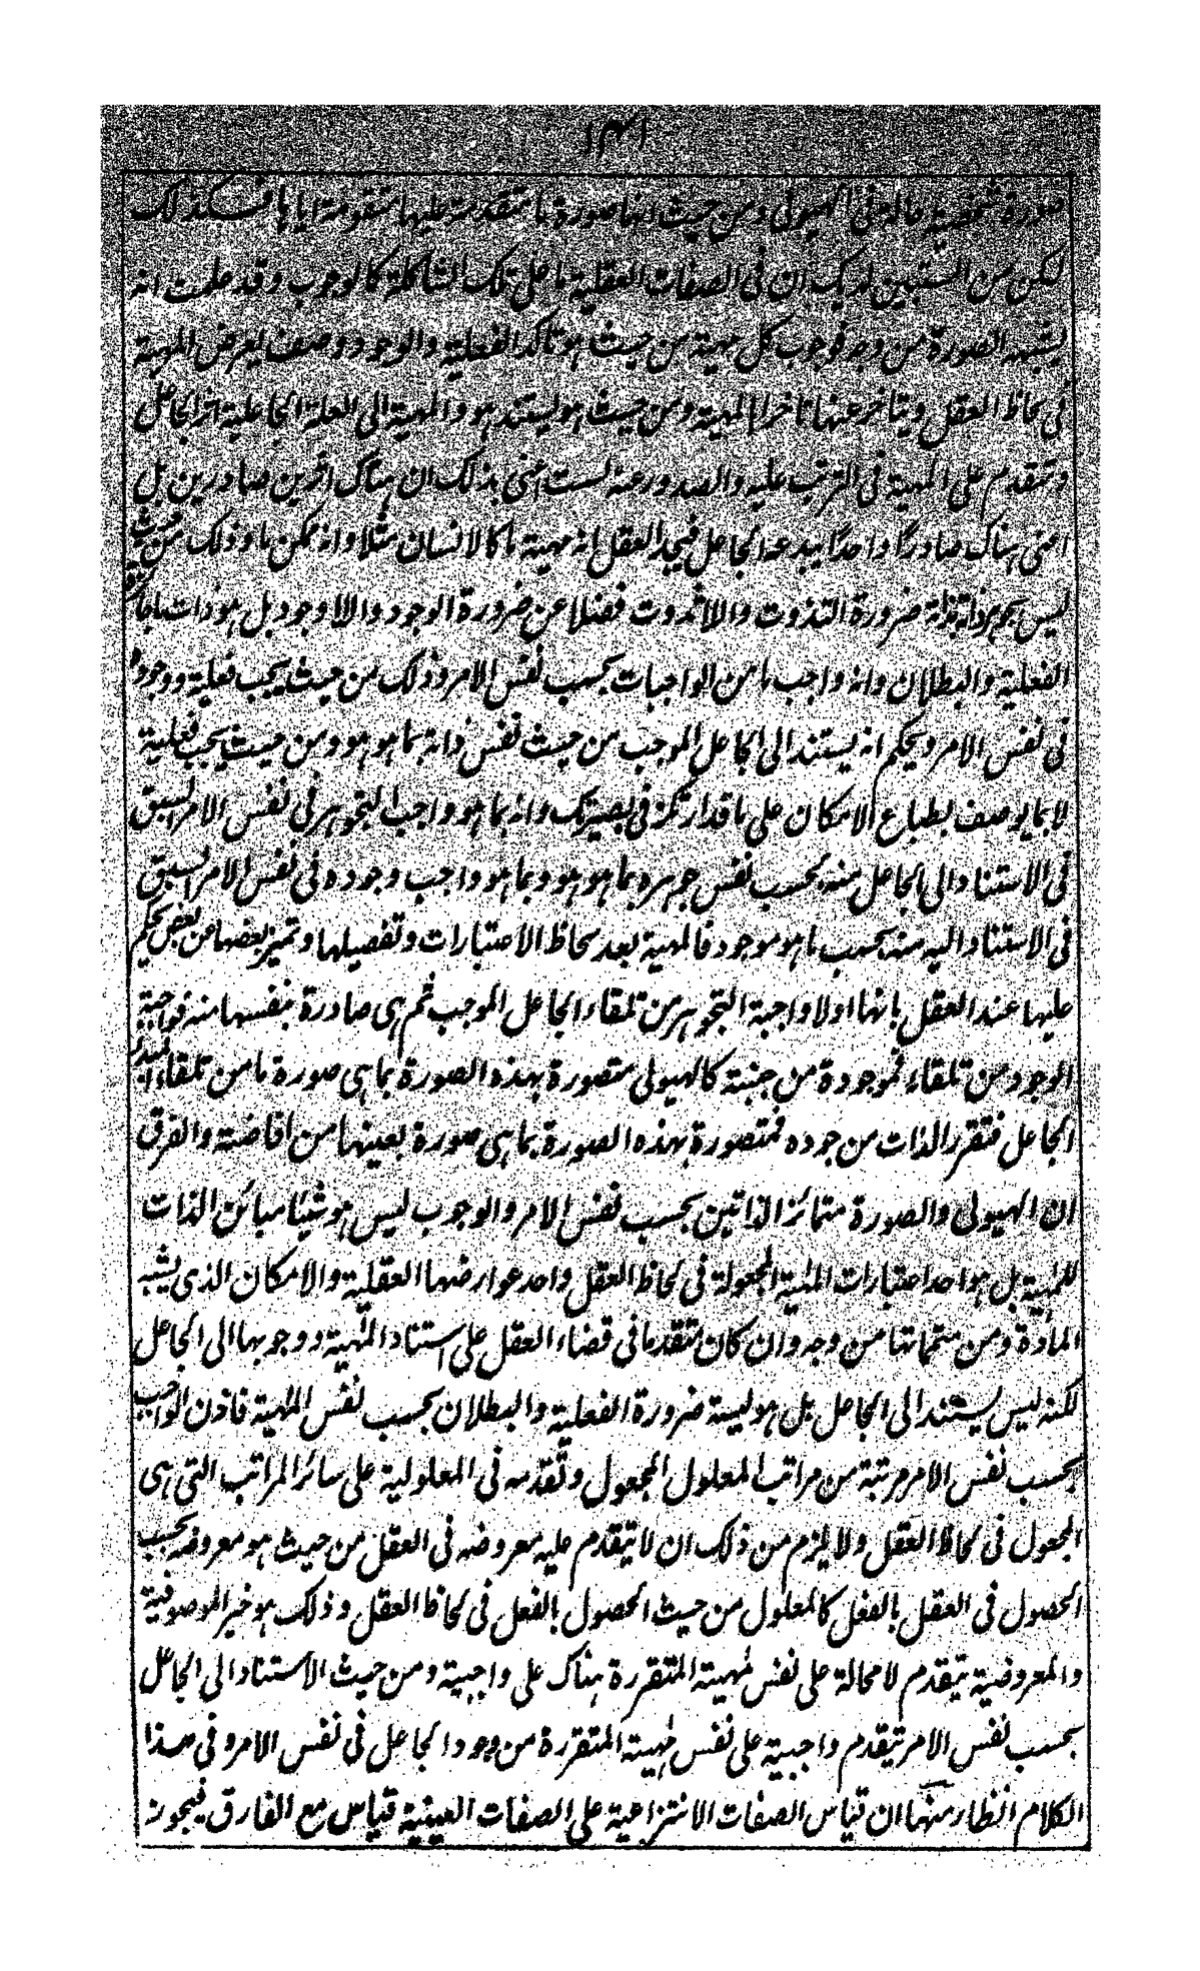 ١٣١
صورة شخصية حالة فى الهيولى ومن حيث انها صورة ما متقدمة عليها متقومة اياها فكذلك
لكن من المستبين لديك ان فى الصفات العقلية ما على تلك الشاكلة كالوجوب وقد علمت انه
يشبه الصورة من وجه فوجوب كل مهية من حيث هو تاكد الفعلية والوجود وصف يعرض المهية
فى لحاظ العقل ويتاخر عنها تاخرا بالمهية ومن حيث هو يستند هو والمهية الى العلة الجاعلية اثر الجاعل
ومتقدم على المهية فى الترتب عليه والصدور عنه لست اعنى بذلك ان هناك اثرين صادرين بل
اعنى هناك صادرا واحدا يبدعه الجاعل فيجد العقل انه مهية ما كالانسان مثلا وانه ممكن ما وذلك من حيث
ليس بجوهر ذاته بذاته ضرورة التذوت واللاتذوت فضلا عن ضرورة الوجود واللاوجود بل هو ذات ما جائزة
الفعلية والبطلان وانه واجب ما من الواجبات بحسب نفس الامر وذلك من حيث يجب فعليته ووجوده
فى نفس الامر ويحكم انه يستند الى الجاعل الموجب من حيث نفس ذاته بما هو هو ومن حيث يجب فعلية
لا بما يوصف بطباع الامكان على ما قد ارتكز فى بصيرتك وانه بما هو واجب التجوهر فى نفس الامر اسبق
فى الاستناد الى الجاعل منه بحسب نفس جوهره بما هو هو وبما هو واجب وجوده فى نفس الامر اسبق
فى الاستناد اليه منه بحسب ما هو موجود فالمهية بعد لحاظ الاعتبارات وتفصيلها وتميز بعضها عن بعض يحكم
عليها عند العقل بانها اولا واجبة التجوهر من تلقاء الجاعل الموجب ثم هى صادرة بنفسها منه فواجبة
الوجود من تلقاء فموجودة من جنبة كالهيولى متصورة بهذه الصورة بما هى صورة ما من تلقاء المبدء
الجاعل فتقرر الذات من جوده فمتصورة بهذه الصورة بما هى صورة بعينها من افاضته والفرق
ان الهيولى والصورة متمائز الذاتين بحسب نفس الامر والوجوب ليس هو شيئا مبائن الذات
للمهية بل هو احد اعتبارات المهية المجعولة فى لحاظ العقل واحد عوارضها العقلية والامكان الذى يشبه
المادة ومن متمماتها من وجه وان كان متقدما فى قضاء العقل على استناد المهية ووجوبها الى الجاعل
لكنه ليس يستند الى الجاعل بل هو ليسية ضرورة الفعلية والبطلان بحسب نفس المهية فاذن الواجب
بحسب نفس الامر مرتبة من مراتب المعلول المجعول وتقدمه فى المعلولية على سائر المراتب التى هى
المجعول فى لحاظ العقل ولا يلزم من ذلك ان لا يتقدم عليه معروضه فى العقل من حيث هو معروضه بحسب
الحصول فى العقل بالفعل كالمعلول من حيث الحصول بالفعل فى لحاظ العقل وذلك هو خير الموصوفية
والمعروضية يتقدم لا محالة على نفس مهية المتقررة هناك على واجبية ومن حيث الاستناد الى الجاعل
بحسب نفس الامر يتقدم واجبية على نفس مهية المتقررة من وجود الجاعل فى نفس الامر وفى هذا
الكلام انظار منها ان قياس الصفات الانتزاعية على الصفات العينية قياس مع الفارق فيجوز